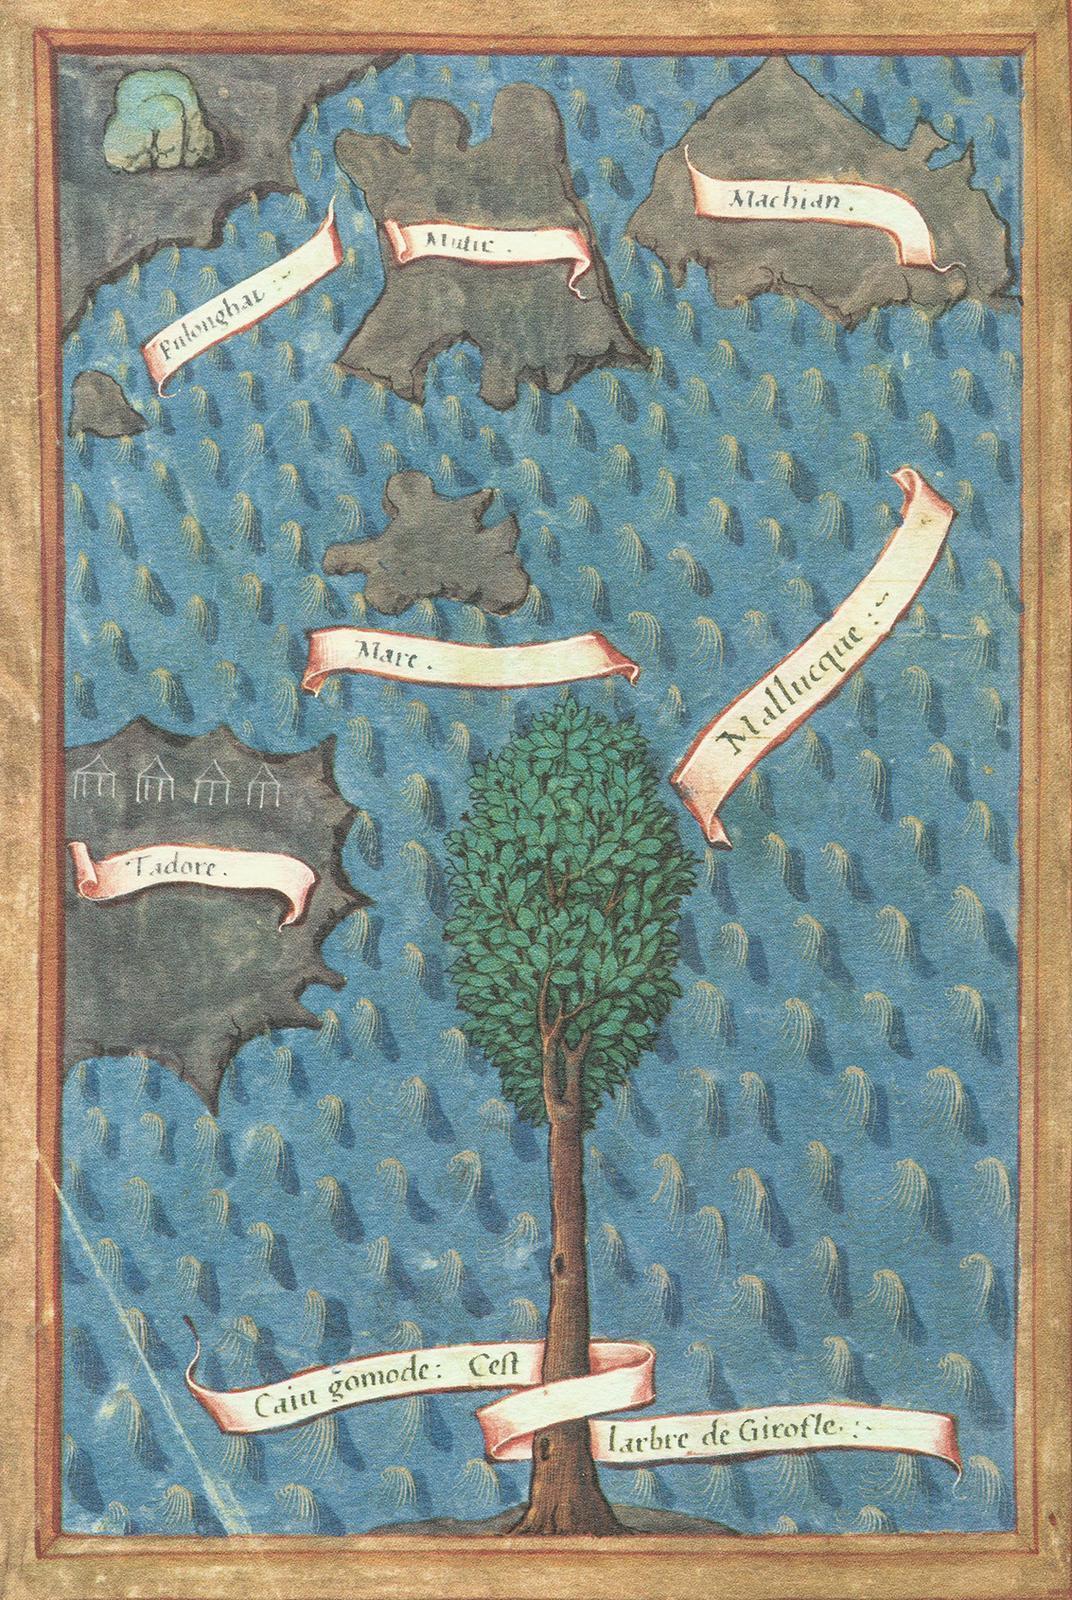 Machian.
Mutir.
Pulonghar :~
Mallucque :~
Mare.
Tadore.
Caiu gomode: Cest
larbre de Girofle :.